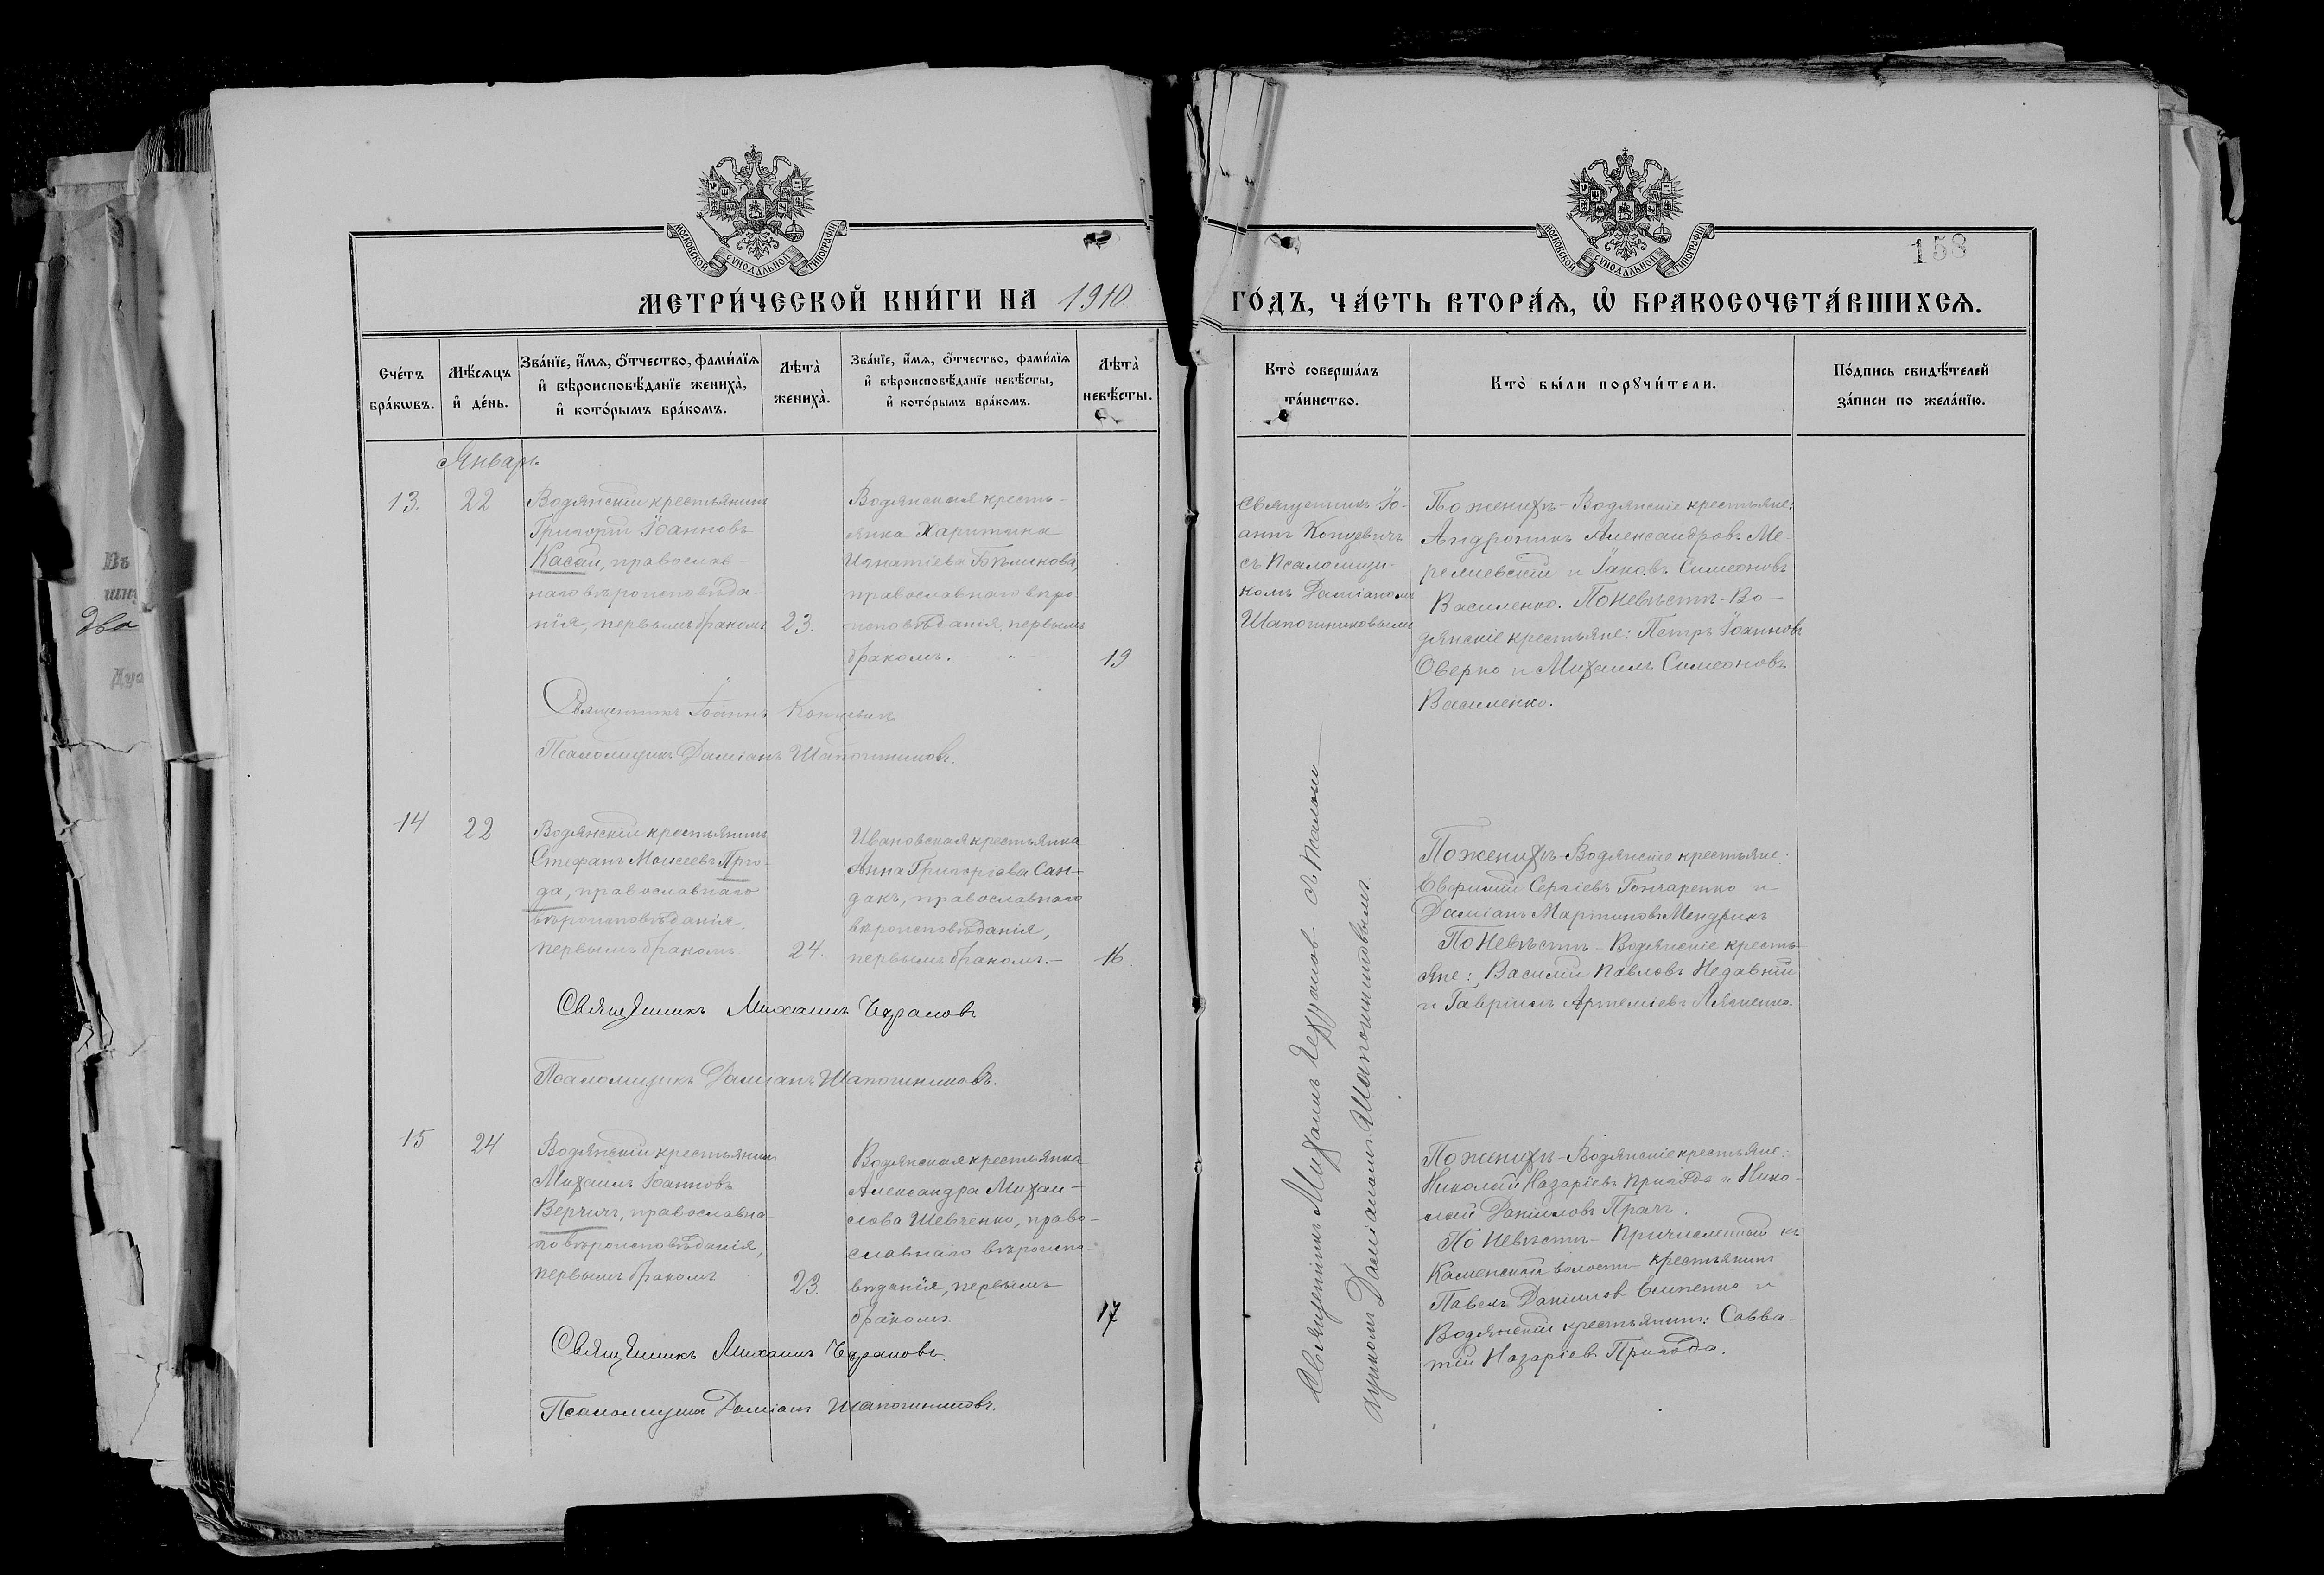 МОСКОВСКОЙ СѴНОДАЛЬНОЙ ТИПОГРАФІИ
МОСКОВСКОЙ СѴНОДАЛЬНОЙ ТИПОГРАФІИ
158
МЕТРИ́ЧЕСКОЙ КНИ́ГИ НА 1910 ГО́ДЪ, ЧА́СТЬ ВТОРА́Ѧ, Ѡ҆ БРАКОСОЧЕТА́ВШИХСѦ.
Сче́тъ бра́кѡвъ.
Мѣ́сяцъ и҆ де́нь.
Зва́нїе, и҆́мѧ, ѻ҆́тчество, фами́лїѧ
и҆ вѣроисповѣ́данїе жениха̀,
и҆ кото́рымъ бра́комъ.
Лѣта̀ жениха̀.
Зва́нїе, и҆́мѧ, ѻ҆́тчество, фами́лїѧ
и҆ вѣроисповѣ́данїе невѣ́сты,
и҆ кото́рымъ бра́комъ.
Лѣта̀ невѣ́сты.
Кто̀ соверша́лъ
та́инство.
Кто̀ бы́ли порꙋчи́тели.
По́дпись свидѣ́телей
за́писи по жела́нїю.
Январь
13.
22
Водянскій крестьянинъ
Григорій Іоанновъ
Касай, православ-
наго вѣроисповѣда-
нія, первымъ бракомъ
23.
Водянская кресть-
янка Харитина
Игнатіева
православнаго вѣро
исповѣданія, первымъ
бракомъ.
19
Священникъ Іо-
аннъ
съ Псаломщи-
комъ Даміаномъ
Шапошниковымъ
По женихѣ - Водянскіе крестьяне:
Андроникъ Александровъ Ме-
и Іаковъ Симеоновъ
Василенко. По невѣстѣ - Во-
дянскіе крестьяне: Петръ Іоанновъ
Оверко и Михаилъ Симеоновъ
Василенко.
Священникъ Іоаннъ
Псаломщикъ Даміанъ Шапошниковъ.
14
22
Водянскій крестьянинъ
Стефанъ Моисеевъ
да, православнаго
вѣроисповѣданія,
первымъ бракомъ
24.
Ивановская крестьянка
Анна Григоріева Сан-
дакъ, православнаго
вѣроисповѣданія,
первымъ бракомъ.-
16.
Священникъ Михаилъ съ псаломщикомъ Даміаномъ Шапошниковымъ.
По женихѣ - Водянскіе крестьяне:
Евфимій Сергіевъ Гончаренко и
Даміанъ Мартиновъ Мендрикъ
По невѣстѣ - Водянскіе кресть-
яне: Василій Павловъ Недавній
и Гавріилъ Артеміевъ
Священникъ Михаилъ
Псаломщикъ Даміанъ Шапошниковъ.
15
24
Водянскій крестьянинъ
Михаилъ Іоанновъ
православна-
го вѣроисповѣданія,
первымъ бракомъ
23.
Водянская крестьянка
Александра Михаи-
лова Шевченко, право-
славнаго вѣроиспо-
вѣданія, первымъ
бракомъ
17
По женихѣ - Водянскіе крестьяне:
Николай Назаріевъ Пригода и Нико-
лай Даніиловъ Прачъ.
По невѣстѣ - Причисленный къ
Каменской волости крестьянинъ
Павелъ Даніиловъ и
Водянскій крестьянинъ: Савва-
тій Назаріевъ Пригода.
Священникъ Михаилъ
Псаломщикъ Даміанъ Шапошниковъ.